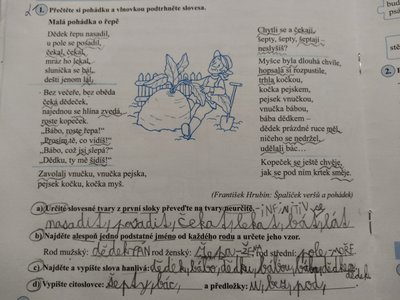 1. Přečtěte si pohádku a vlnovkou podtrhněte slovesa.
Malá pohádka o řepě
Dědek řepu nasadil,
u pole se posadil,
čekal, čekal,
mráz ho lekal,
sluníčka se bál,
dešti jenom lál.
Bez večeře, bez oběda
čeká dědeček,
najednou se hlína zvedá,
roste kopeček.
„Bábo, roste řepa!“
„Prosím tě, co vidíš!“
„Bábo, což jsi slepá?“
„Dědku, ty mě šidíš!“
Zavolali vnučku, vnučka pejska,
pejsek kočku, kočka myš.
Chytli se a čekají,
šepty, šepty, šeptají –
neslyšíš?
Myšce byla dlouhá chvíle,
hopsala si rozpustile,
trhla kočkou,
kočka pejskem,
pejsek vnučkou,
vnučka bábou,
bába dědkem –
dědek prázdné ruce měl,
ničeho se nedržel,
udělali bác...
Kopeček se ještě chvěje,
jak se pod ním krtek směje.
(František Hrubín: Špalíček veršů a pohádek)
a) Určité slovesné tvary z první sloky převeďte na tvary neurčité. -INFINITIV
nasadit, posadit, čekat, lekat, bát, lát
b) Najděte alespoň jedno podstatné jméno od každého rodu a určete jeho vzor.
Rod mužský: dědek PÁN rod ženský: řepa-ŽENA rod střední: pole MOŘE
c) Najděte a vypište slova hanlivá: dědek, bábo, dědku, bábou, bába, dědkem
dědek
d) Vypište citoslovce: šepty, bác, a předložky: u, bez, pod,
2.